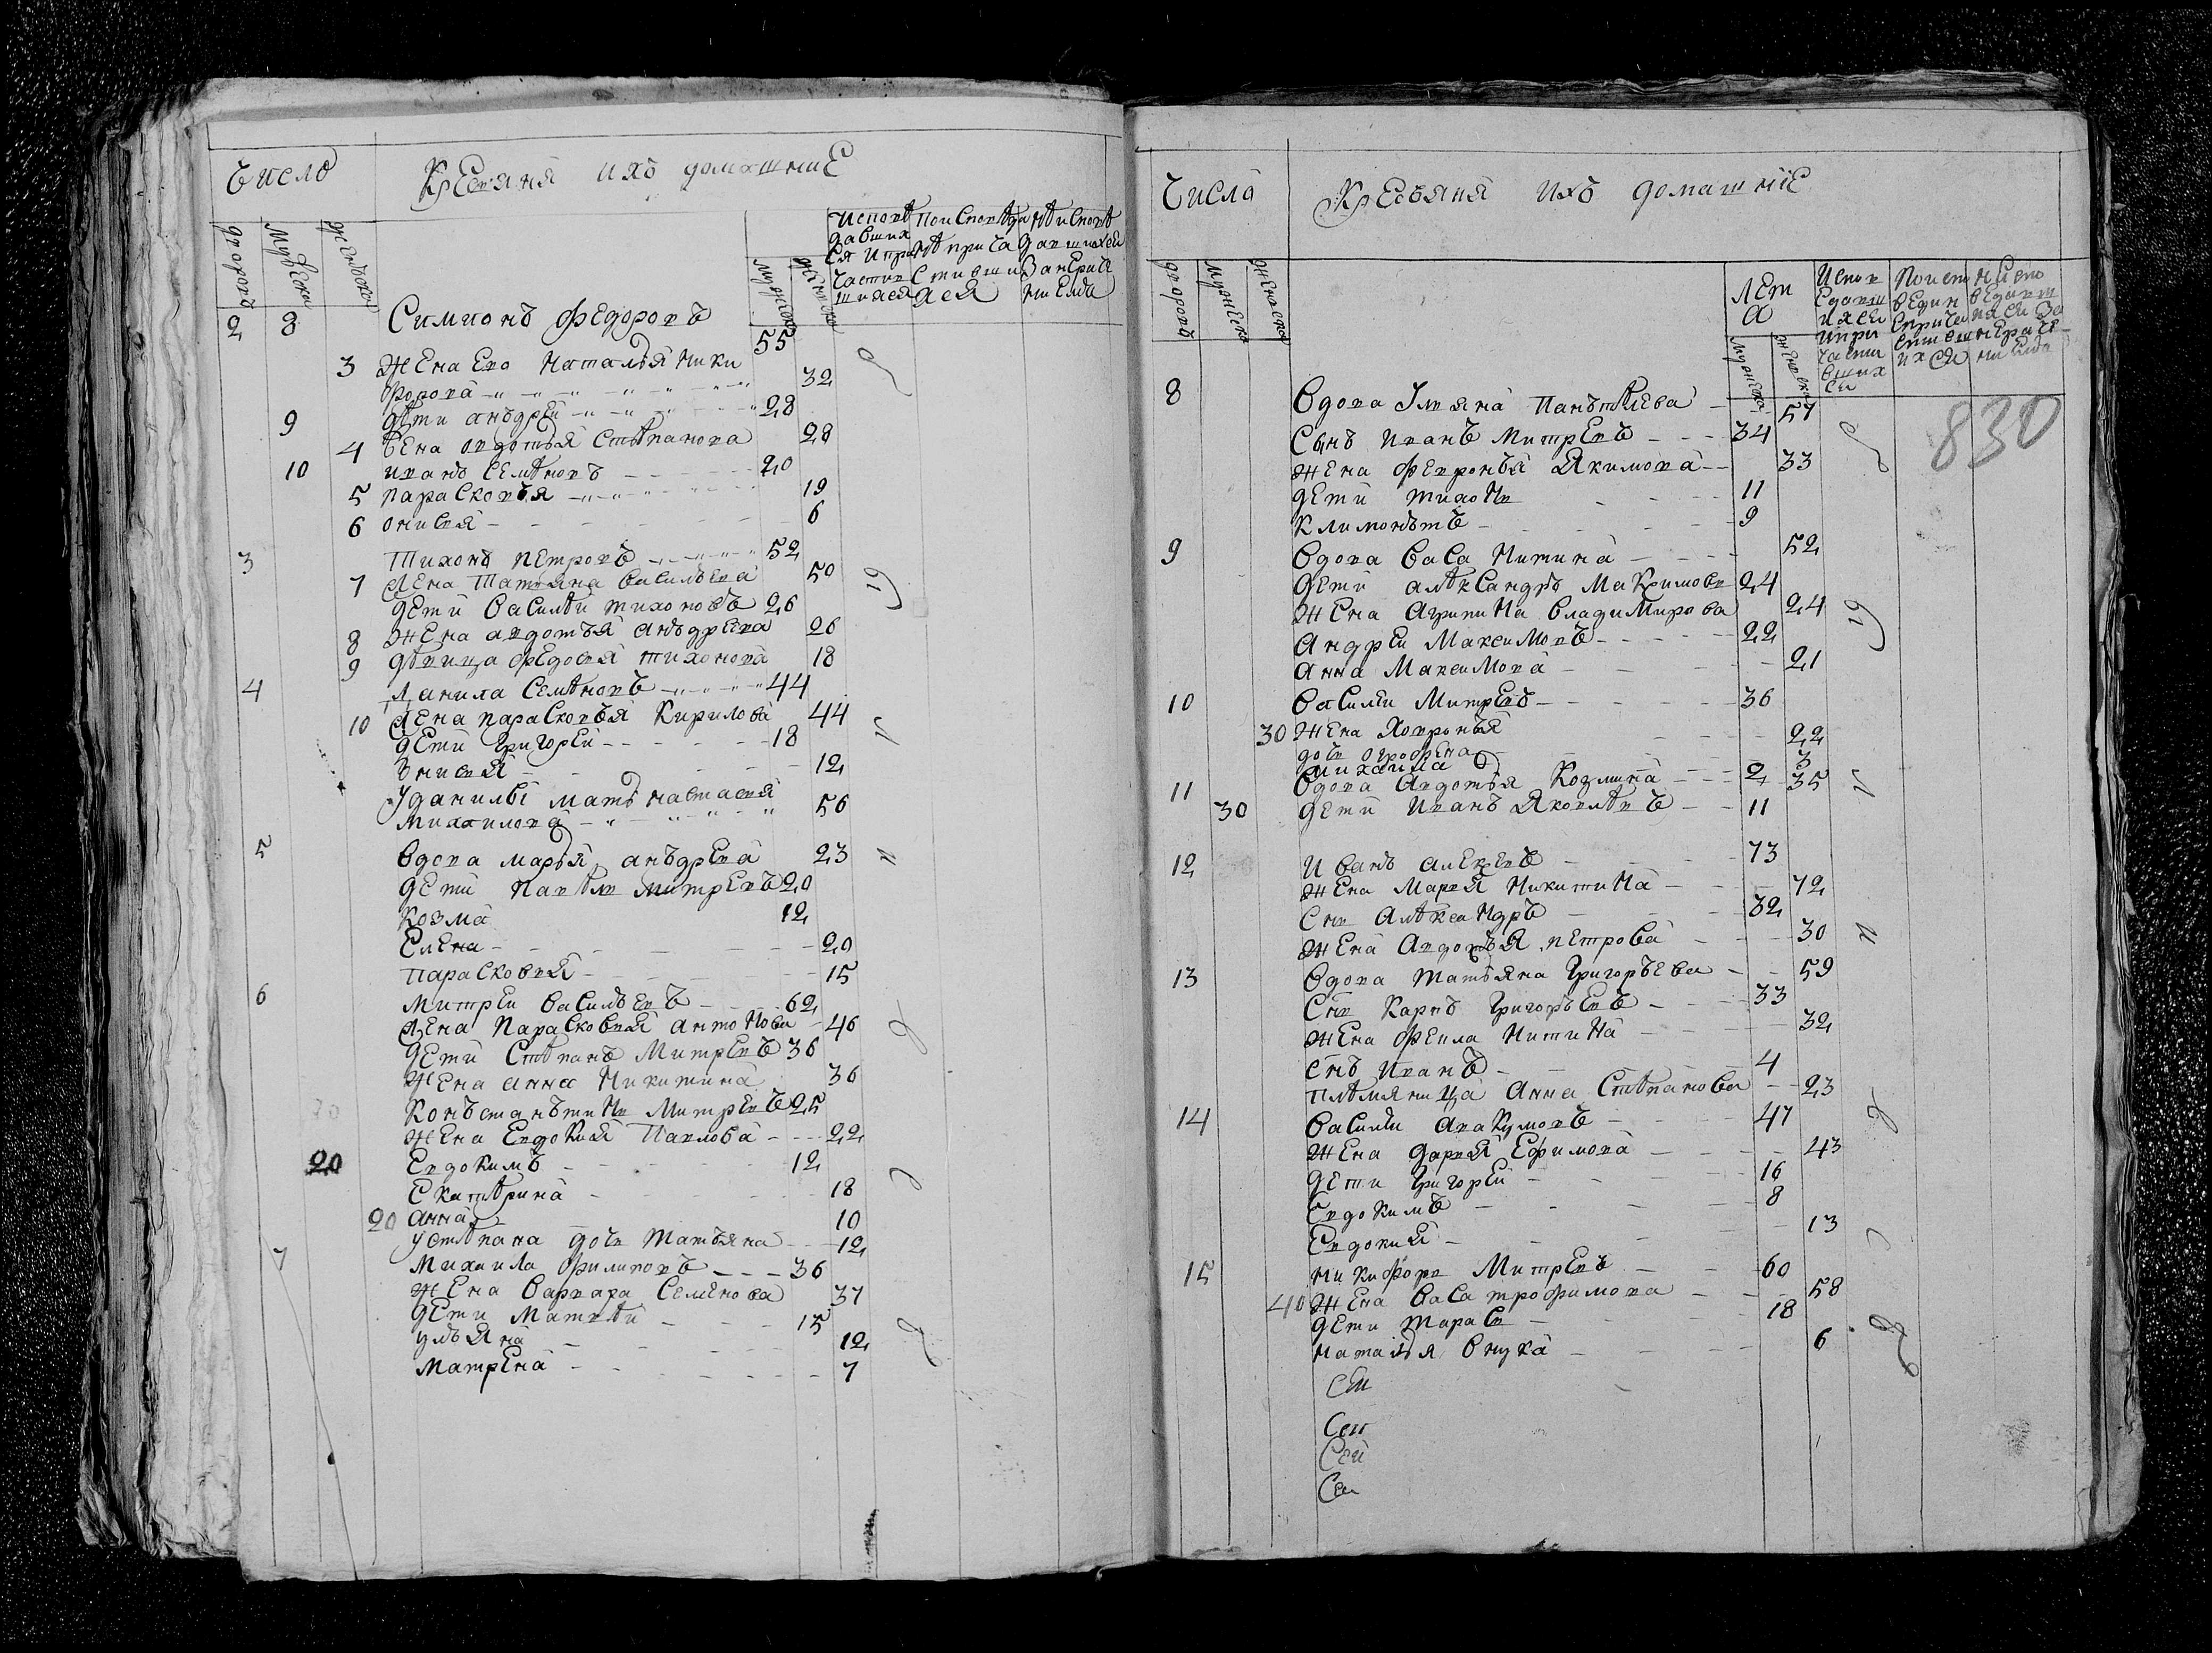 Число
Крестьяня ихъ домашние
дворовъ
мужеска
женска
мужеска
женска
2 8 Симионъ Федоровъ 55
3 Жена ево Наталья Ники
форова 32
9 дети анъдрей 28
4 Жена овдотья Степанова 28
10 иванъ Семѣновъ 20
5 параСковья 19
6 онисья 6
3 Тихонъ Петровъ 52
7 Жена Татьяна Васильева 50
дети Василѣй тихоновъ 26
8 Жена авдотья анъдрева 26
9 дѣвица федосья тихонова 18
4 Данила Семѣновъ 44
10 Жена параСковья Кирилова 44
дети Григорей 18
12
У данилы мать настасья
Михаилова 56
5 Вдова марья анъдрева 23
дети Павѣлъ митревъ 20
Козма 12
Елена 20
параСковья 15
6 Митрей Васильевъ 62
Жена ПараСковья антонова 46
дети Стѣпанъ Митревъ 36
Жена анна Никитина 36
Конъстанътинъ Митревъ 25
Жена Евдокия Павлова 22
20 Евдокимъ 12
Екатѣрина 18
20 анна 10
у Стѣпана дочь Татьяна 12
7 Михаила Филиповъ 36
Жена Варвара Семенова 37
дети Матвѣй 15
ульяна 12
Матрена 7
Числа
Кресьяня ихъ домашние
дворовъ
мужеска
женска
Лет
а
мужеска
женска
830
8 Вдова Ульяна Панътѣлева 57
Сынъ иванъ Митревъ 34
жена Февронья Якимова 33
дети тихонъ 11
Климонътъ 9
9 Вдова ВаСа Титина 52
дети алѣксандръ Максимовъ 24
Жена Агрипина Владимирова 24
Андрей Максимовъ 22
анна Максимова 21
10 Василей Митревъ 36
30 Жена Ховронья 22
дочь огрофена 3
михаила 2
11 Вдова Авдотья Козмина 35
30 дети Иванъ Яковлѣвъ 11
12 Иванъ алексевъ 73
жена Марья Никитина 72
Снъ Алѣксандръ 32
жена Авдотья петрова 30
13 Вдова татьяна Григорьева 59
Снъ Карпъ Григорьевъ 33
жена Фекла Титина 32
Снъ иванъ 4
плѣмяница Анна Стѣпанова 23
14 Василей Авакумовъ 47
жена дарья Ефимова 43
дети Григорей 16
Евдокимъ 8
Евдокия 13
15 Никифоръ Митревъ 60
40 жена ВаСа трофимова 58
дети тарасъ 18
наталья внука 6